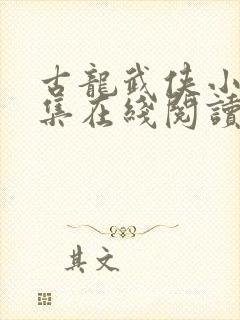 古龍武俠小
集在綫閱讀
其文